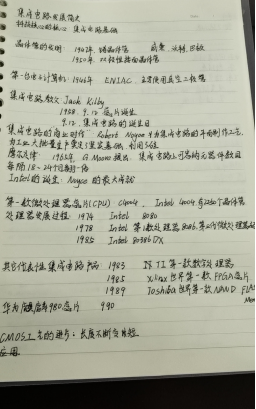 集成电路发展简史
科技核心的核心 集成电路基础
晶体管的发明: 1947年 锗晶体管 肖克、沃利、巴顿
1950年. 双极性结面晶体管
第一台电子计算机: 1946年 ENIAC. 主要使用真空二极管
集成电路教父: Jack Kilby
1958. 9. 12. 芯片诞生
9. 12. 集成电路的诞生日
集成电路的商业时代: Robert Noyce 提出集成电路的平面制作工艺.
为工业大批量生产奠定了坚实基础, 利用Si
摩尔定律 1965年, G Moore 提出. 集成电路上可容纳元器件数目
每隔18-24个月翻一倍
Intel的诞生: Noyce 的最大成就
第一款微处理器芯片(CPU) C4004. Intel 4004 有2250个晶体管
处理器发展过程: 1974 Intel 8080
1978 Intel 第1款处理器 8086. 第二代微处理器
1985 Intel 80386DX
其它代表性集成电路产品: 1983 TI 第一款数字处理器
1985 Xilinx 世界第一款FPGA芯片
1989 Toshiba 世界第一款NAND FLASH
华为麒麟980芯片 990
CMOS工艺的进步: 长度不断变短
应用